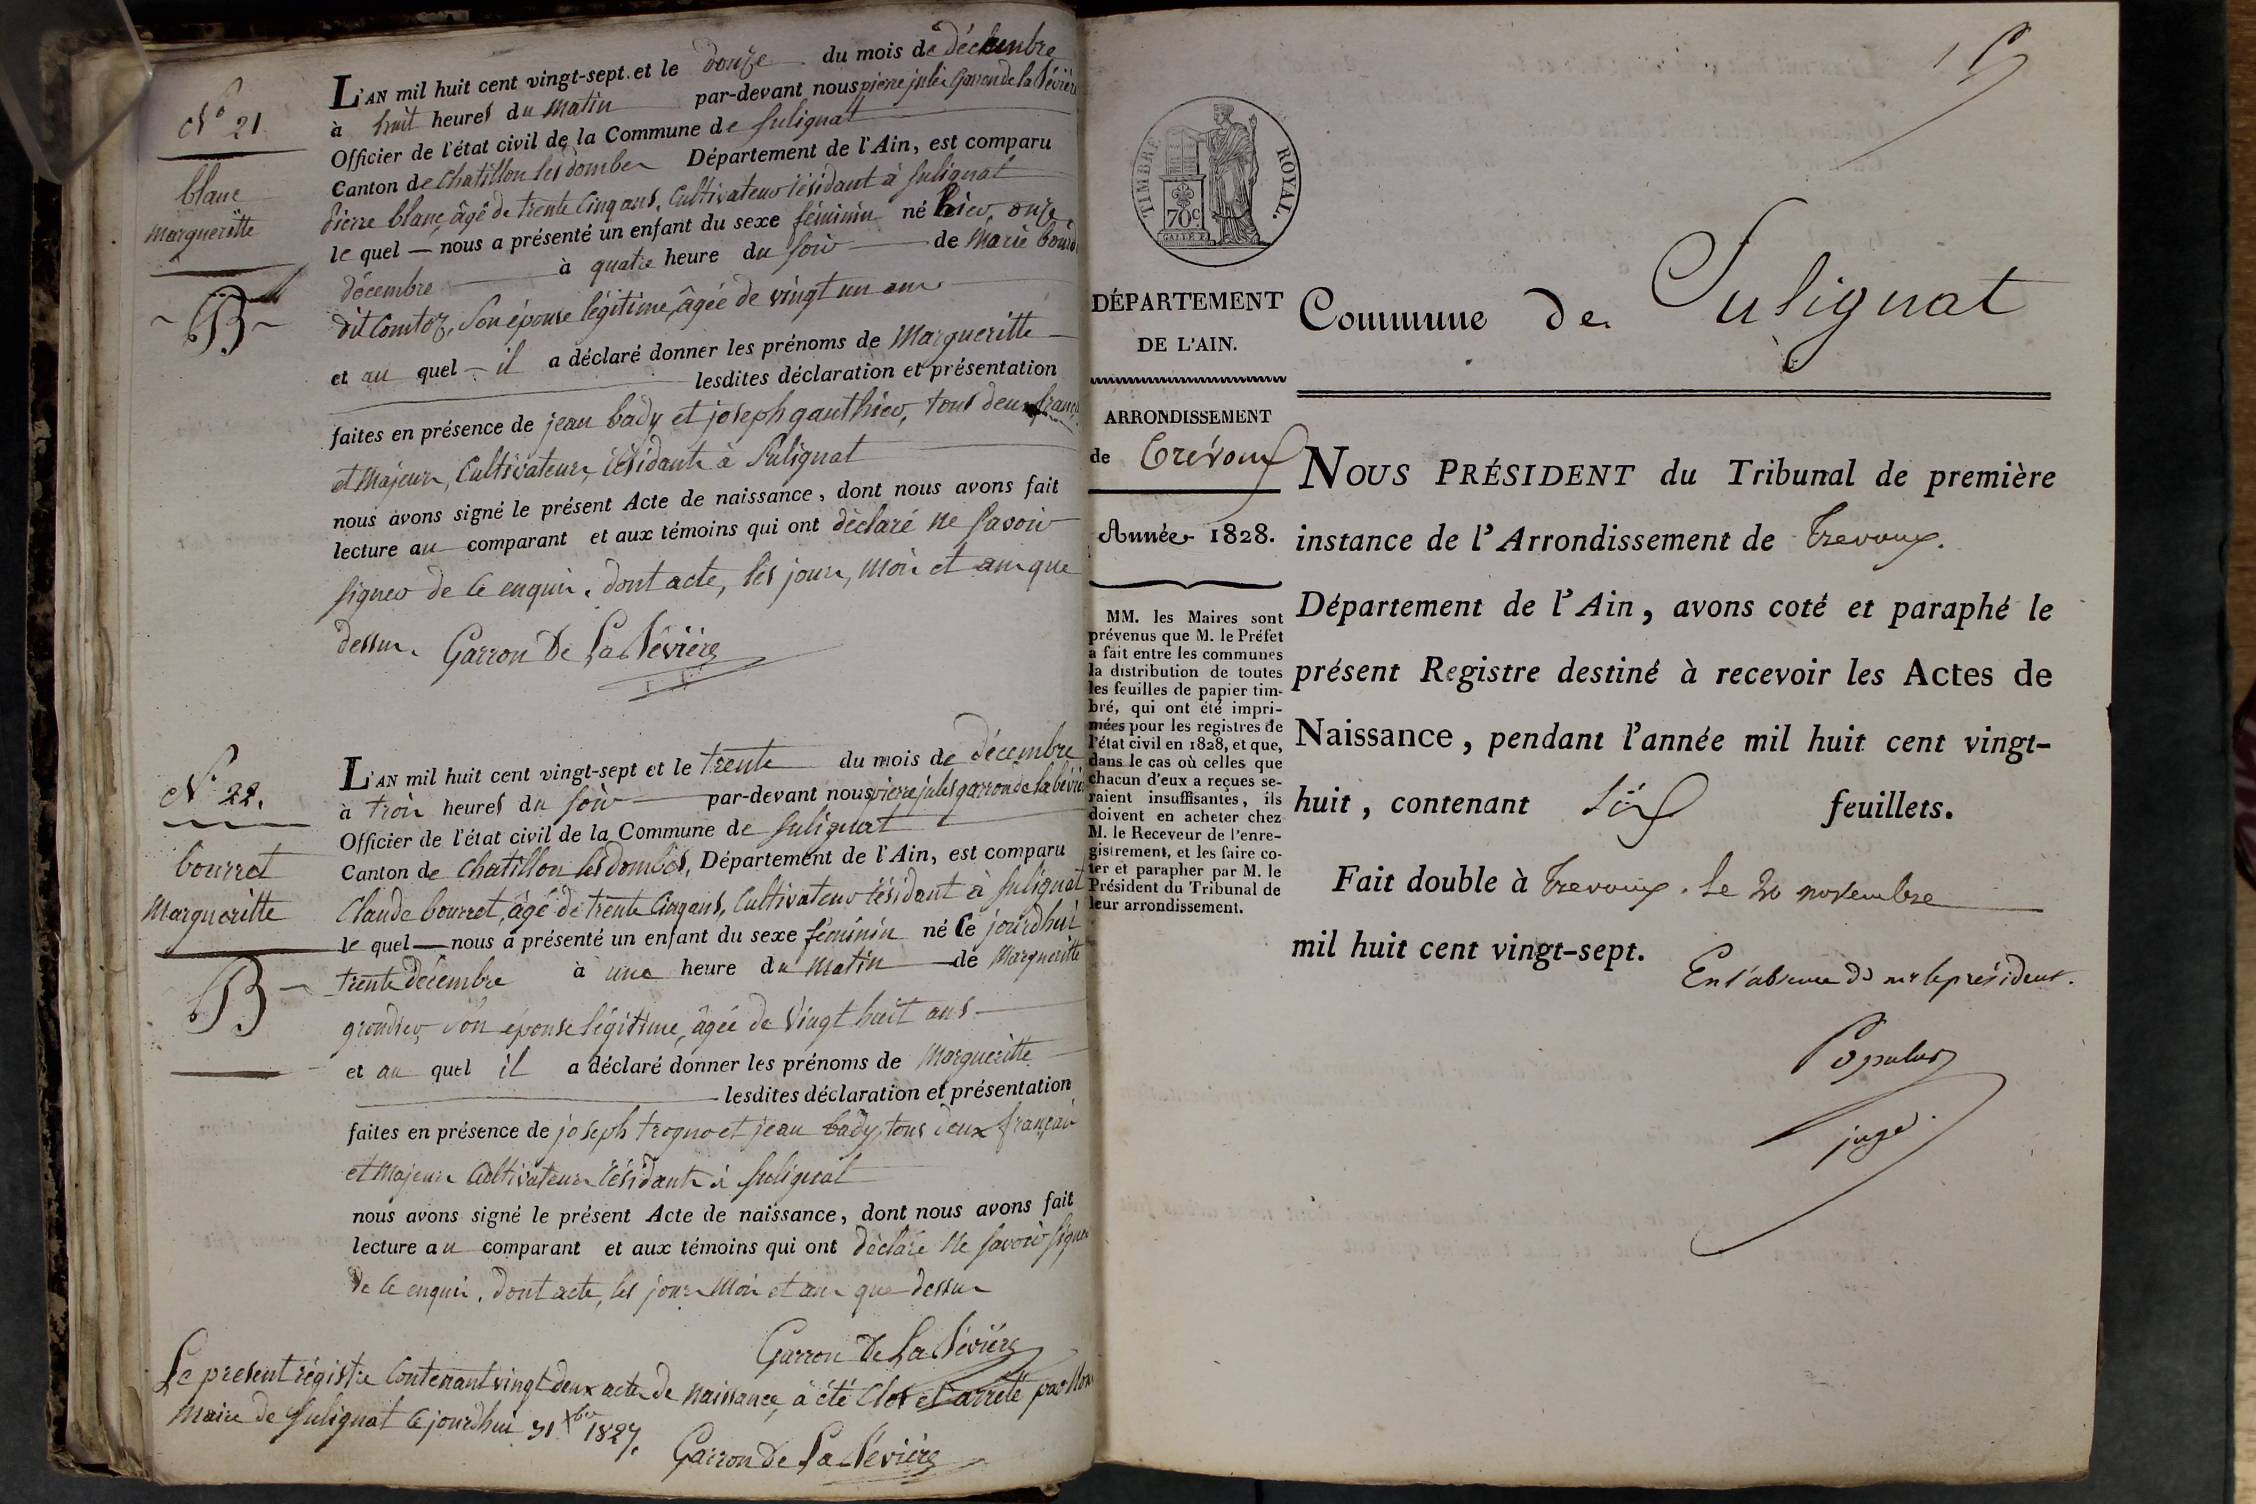 N° 21
blanc
Margueritte
L'AN mil huit cent vingt-sept et le douze du mois de décembre
à huit heures du matin par-devant nous pierre jules Garron de la Bévière
Officier de l'état civil de la Commune de Sulignat
Canton de Chatillon les dombes Département de l'Ain, est comparu
pierre blanc, âgé de trente cinq ans, Cultivateur résidant à Sulignat
le quel — nous a présenté un enfant du sexe féminin né hier, onze
décembre à quatre heure du soir de Marie
dit Comtoz, son épouse légitime, âgée de vingt un ans
et au quel — il a déclaré donner les prénoms de Margueritte
lesdites déclaration et présentation
faites en présence de jean bady et joseph gauthier, tous deux français
et Majeurs, Cultivateurs, résidants à Sulignat
nous avons signé le présent Acte de naissance, dont nous avons fait
lecture au comparant et aux témoins qui ont déclaré ne savoir
signer de ce enquis. dont acte, les jour, mois et an que
dessus. Garron De La Bévière
N° 22.
bourret
Margueritte
L'AN mil huit cent vingt-sept et le trente du mois de décembre
à trois heures du soir par-devant nous pierre jules garron de la bévière
Officier de l'état civil de la Commune de Sulignat
Canton de Chatillon les dombes, Département de l'Ain, est comparu
Claude bourret, âgé de trente cinq ans, Cultivateur résidant à Sulignat
le quel — nous a présenté un enfant du sexe féminin né ce jourdhui
trente décembre à une heure du matin de Margueritte
grondier, son épouse légitime, âgée de vingt huit ans
et au quel il a déclaré donner les prénoms de Margueritte
lesdites déclaration et présentation
faites en présence de joseph trogno et jean bady, tous deux français
et Majeurs Cultivateurs résidants à Sulignat
nous avons signé le présent Acte de naissance, dont nous avons fait
lecture au comparant et aux témoins qui ont déclaré ne savoir signer
de ce enquis. Dont acte, les jour Mois et an que dessus
Garron De La Bévière
Le present régistre Contenant vingt deux actes de naissance, à été Clos et arrêté par Nous
Maire de Sulignat Ce jourdhui 31 Xbre 1827.
Garron De La Bévière
TIMBRE ROYAL.
70c
DÉPARTEMENT
DE L'AIN.
ARRONDISSEMENT
de Trévoux
Année 1828.
MM. les Maires sont
prévenus que M. le Préfet
a fait entre les communes
la distribution de toutes
les feuilles de papier tim-
bré, qui ont été impri-
mées pour les registres de
l'état civil en 1828, et que,
dans le cas où celles que
chacun d'eux a reçues se-
raient insuffisantes, ils
doivent en acheter chez
M. le Receveur de l'enre-
gistrement, et les faire co-
ter et parapher par M. le
Président du Tribunal de
leur arrondissement.
Commune de Sulignat
NOUS PRÉSIDENT du Tribunal de première
instance de l'Arrondissement de Trevoux.
Département de l'Ain, avons coté et paraphé le
présent Registre destiné à recevoir les Actes de
Naissance, pendant l'année mil huit cent vingt-
huit, contenant six feuillets.
Fait double à Trevoux. le 20 novembre
mil huit cent vingt-sept.
En l'absence de mr le président.
Populus
juge.